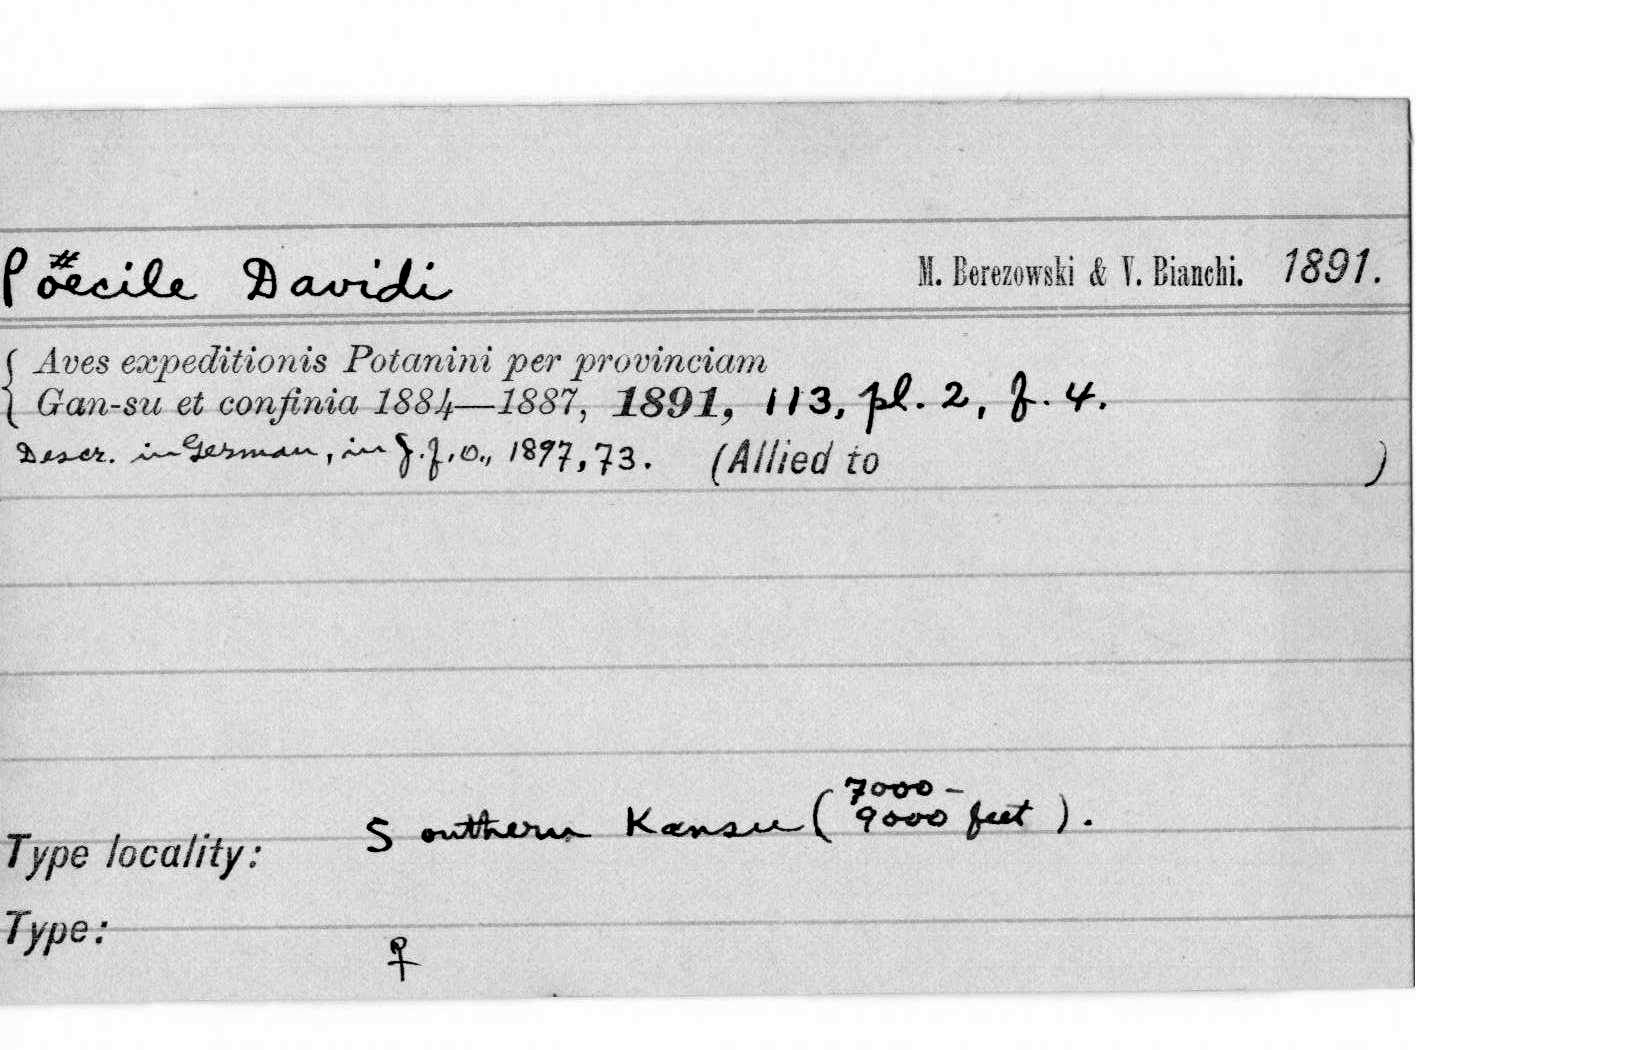 Pöecile Davidi M. Berezowski & V. Bianchi. 1891.
Aves expeditionis Potanini per provinciam
Gan-su et confinia 1884—1887, 1891, 113, pl. 2, f. 4.
Descr. in German, in J.f.O., 1897, 73. (Allied to )
Type locality: Southern Kansu (7000-
9000 feet).
Type: ♀